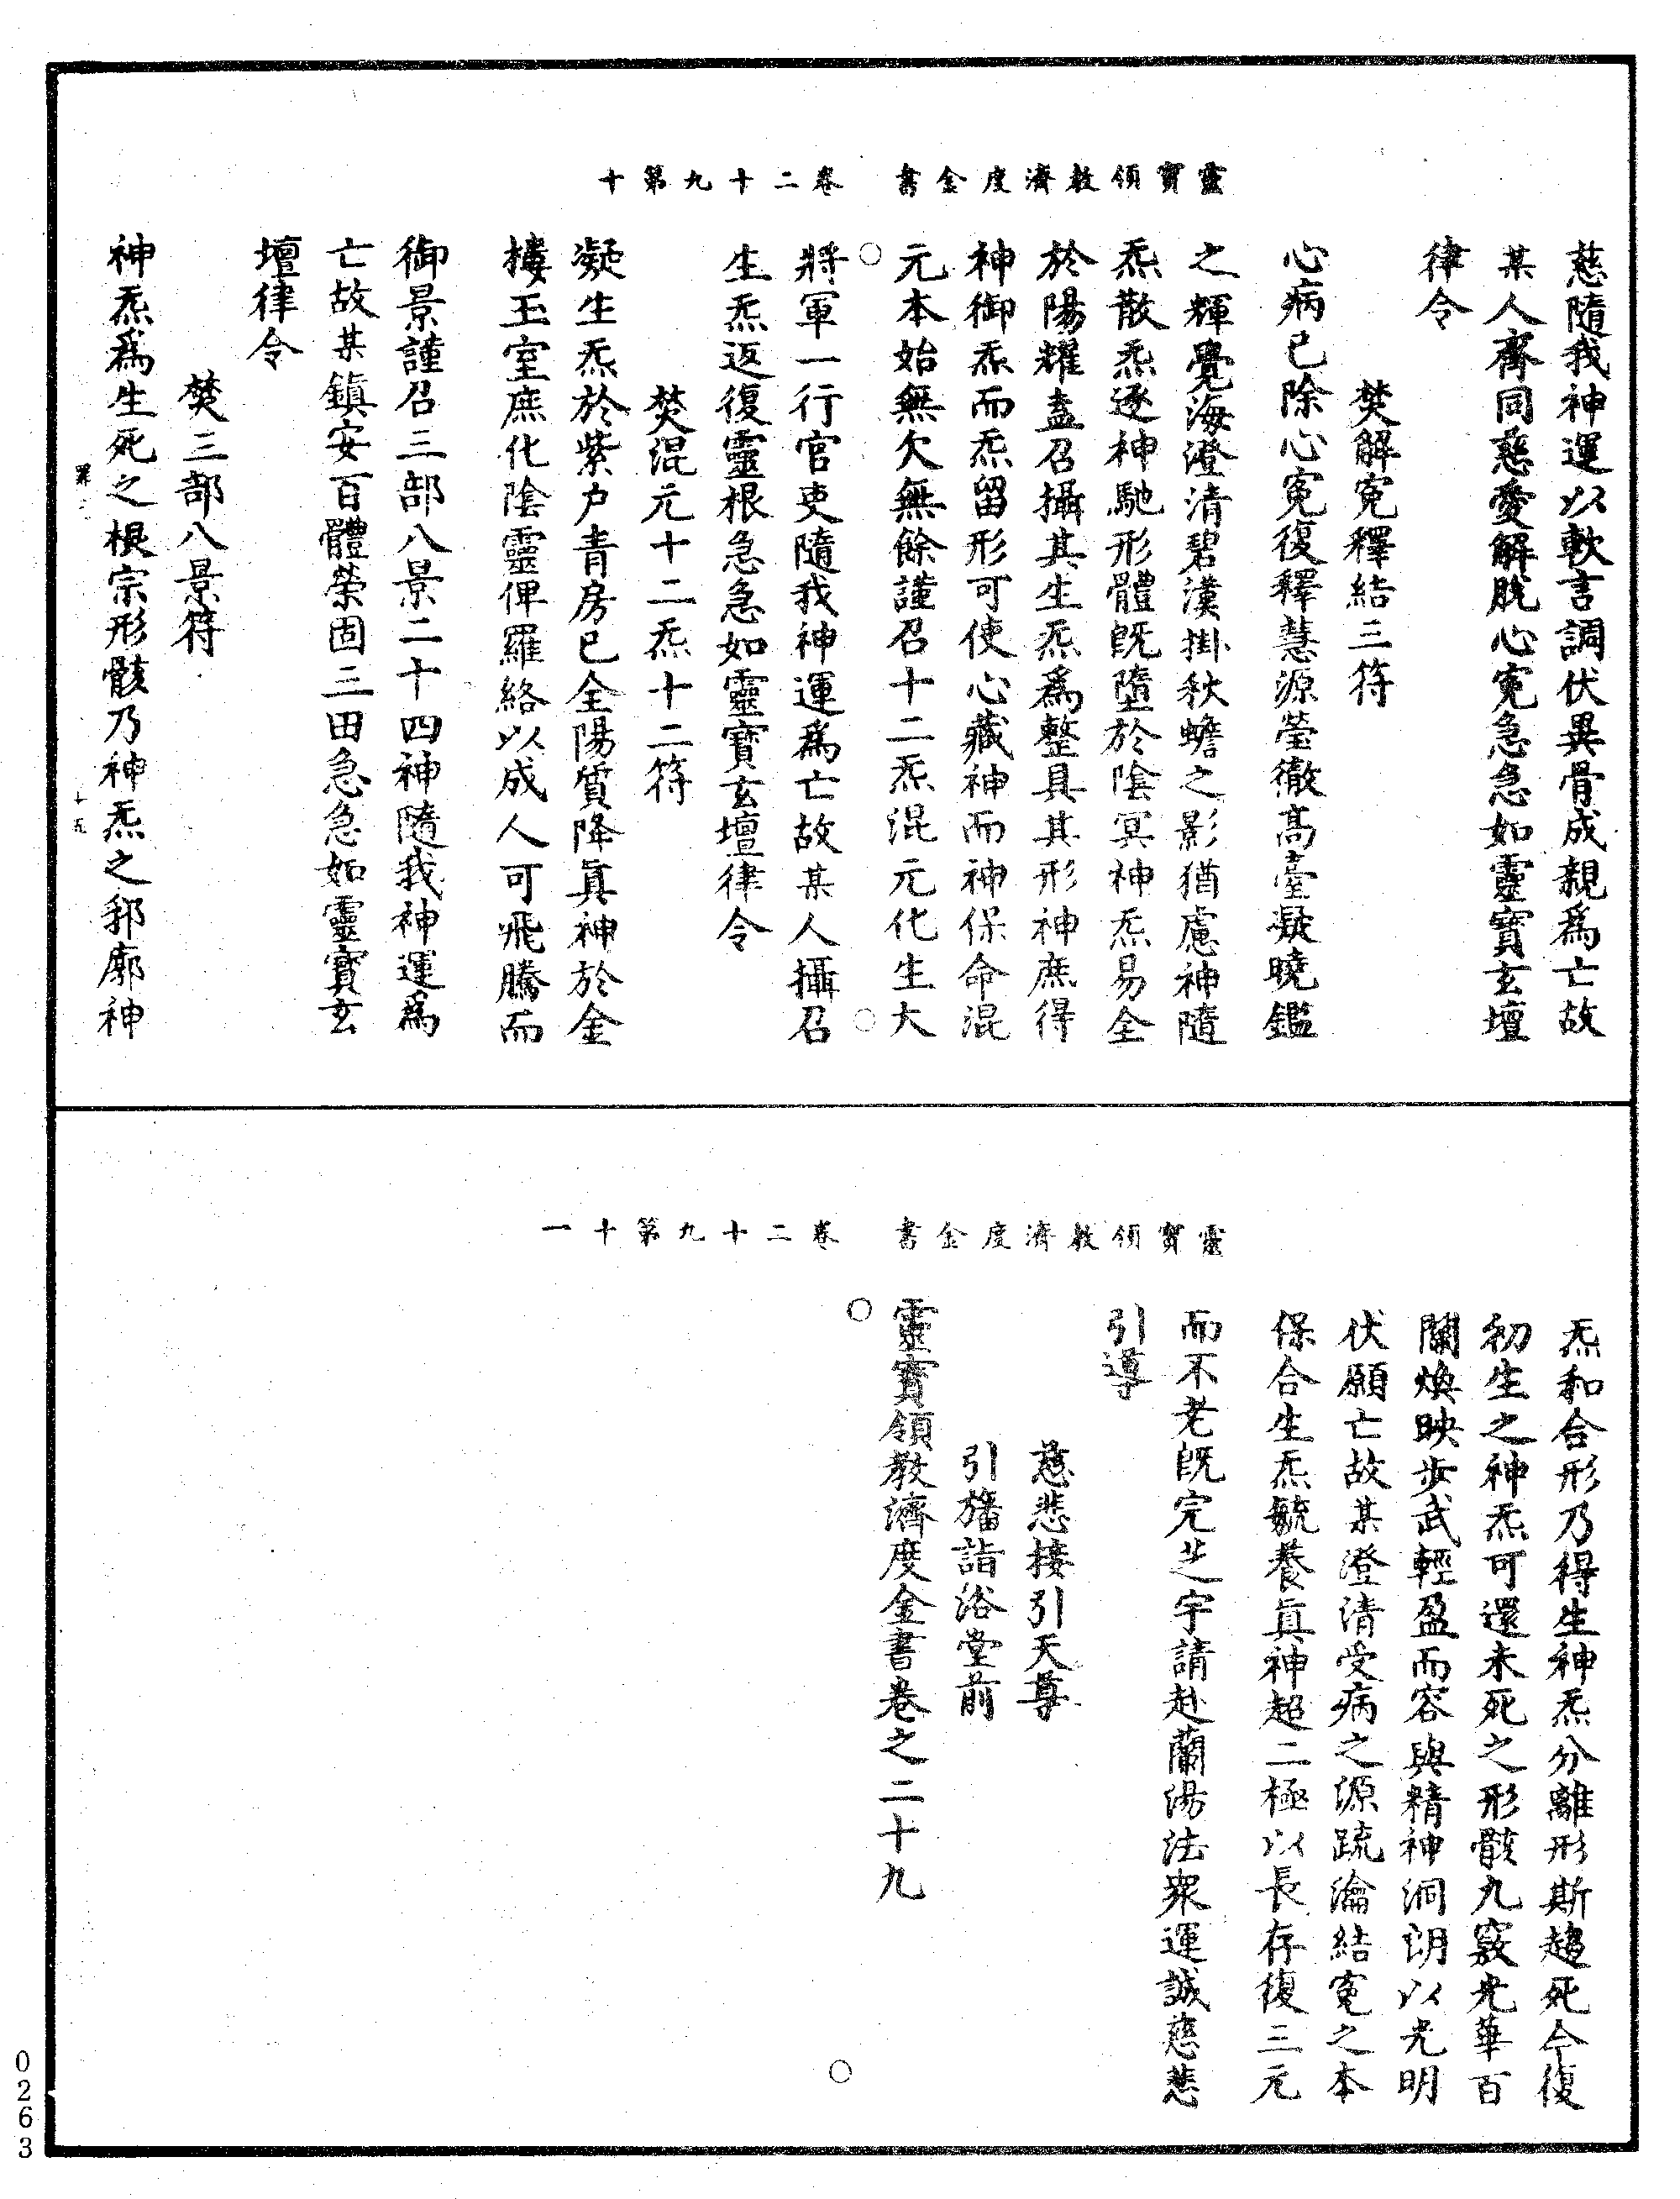 靈寶領教濟度金書　卷二十九第十
慈隨我神運以軟言調伏異骨成親爲亡故
某人齊同慈愛解脫心寃急急如靈寶玄壇
律令
焚解寃釋結三符
心病已除心寃復釋慧源瑩徹高臺凝曉鑑
之輝覺海澄清碧漢掛秋蟾之影猶慮神隨
炁散炁逐神馳形體旣墮於陰冥神炁易全
於陽耀盍召攝其生炁爲整具其形神庶得
神御炁而炁留形可使心藏神而神保命混
元本始無欠無餘謹召十二炁混元化生大
將軍一行官吏隨我神運爲亡故某人攝召
生炁返復靈根急急如靈寶玄壇律令
焚混元十二炁十二符
凝生炁於紫户青房已全陽質降眞神於金
樓玉室庶化陰靈俾羅絡以成人可飛騰而
御景謹召三部八景二十四神隨我神運爲
亡故某鎮安百體榮固三田急急如靈寶玄
壇律令
焚三部八景符
神炁爲生死之根宗形骸乃神炁之郛廓神
十五
靈寶領教濟度金書　卷二十九第十一
炁和合形乃得生神炁分離形斯趨死今復
初生之神炁可還未死之形骸九竅光華百
關煥映步武輕盈而容與精神洞朗以光明
伏願亡故某澄清受病之源疏瀹結寃之本
保合生炁毓養眞神超二極以長存復三元
而不老旣完芝宇請赴蘭湯法衆運誠慈悲
引導
慈悲接引天尊
引旛詣浴堂前
靈寶領教濟度金書卷之二十九
0263